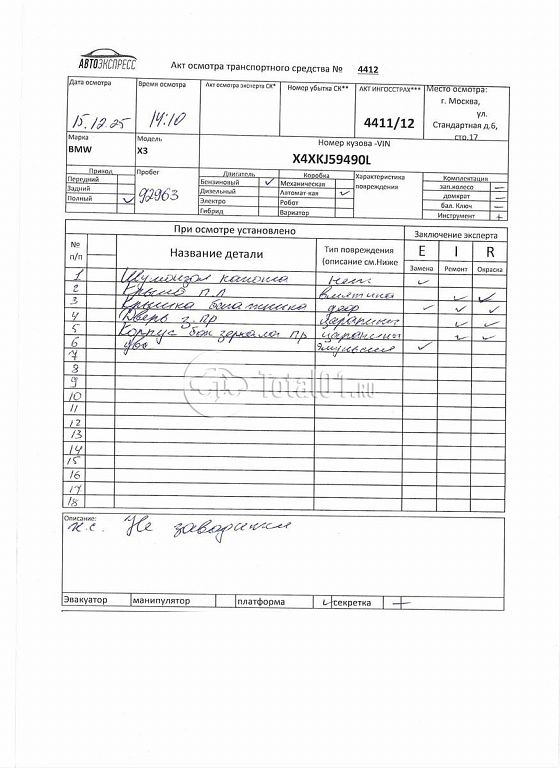 АВТОЭКСПРЕСС
Акт осмотра транспортного средства № 4412
Дата осмотра
15.12.25
Время осмотра
14:10
Акт осмотра эксперта СК*
Номер убытка СК**
АКТ ИНГОССТРАХ***
4411/12
Место осмотра:
г. Москва,
ул.
Стандартная д.6,
стр.17
Марка
BMW
Модель
X3
Номер кузова -VIN
X4XKJ59490L
Привод
Передний
Задний
Полный ✓
Пробег
92963
Двигатель
Бензиновый ✓
Дизельный
Электро
Гибрид
Коробка
Механическая
Автомат-кая ✓
Робот
Вариатор
Характеристика
повреждения
Комплектация
зап.колесо —
домкрат —
бал. Ключ —
Инструмент +
При осмотре установлено
Заключение эксперта
№
п/п
Название детали
Тип повреждения
(описание см.Ниже
E I R
Замена Ремонт Окраска
1 Шумоизол капота нет ✓
2 Крыло п.п вмятина ✓ ✓
3 Крышка багажника деф ✓ ✓
4 Дверь з.пр царапины ✓ ✓
5 Корпус бок зеркала пр царапины ✓ ✓
6 Двс эмульсия ✓
7
8
9
10
11
12
13
14
15
16
17
18
Total01.RU
Описание:
н.с. Не заводится
Эвакуатор манипулятор платформа ✓ секретка —